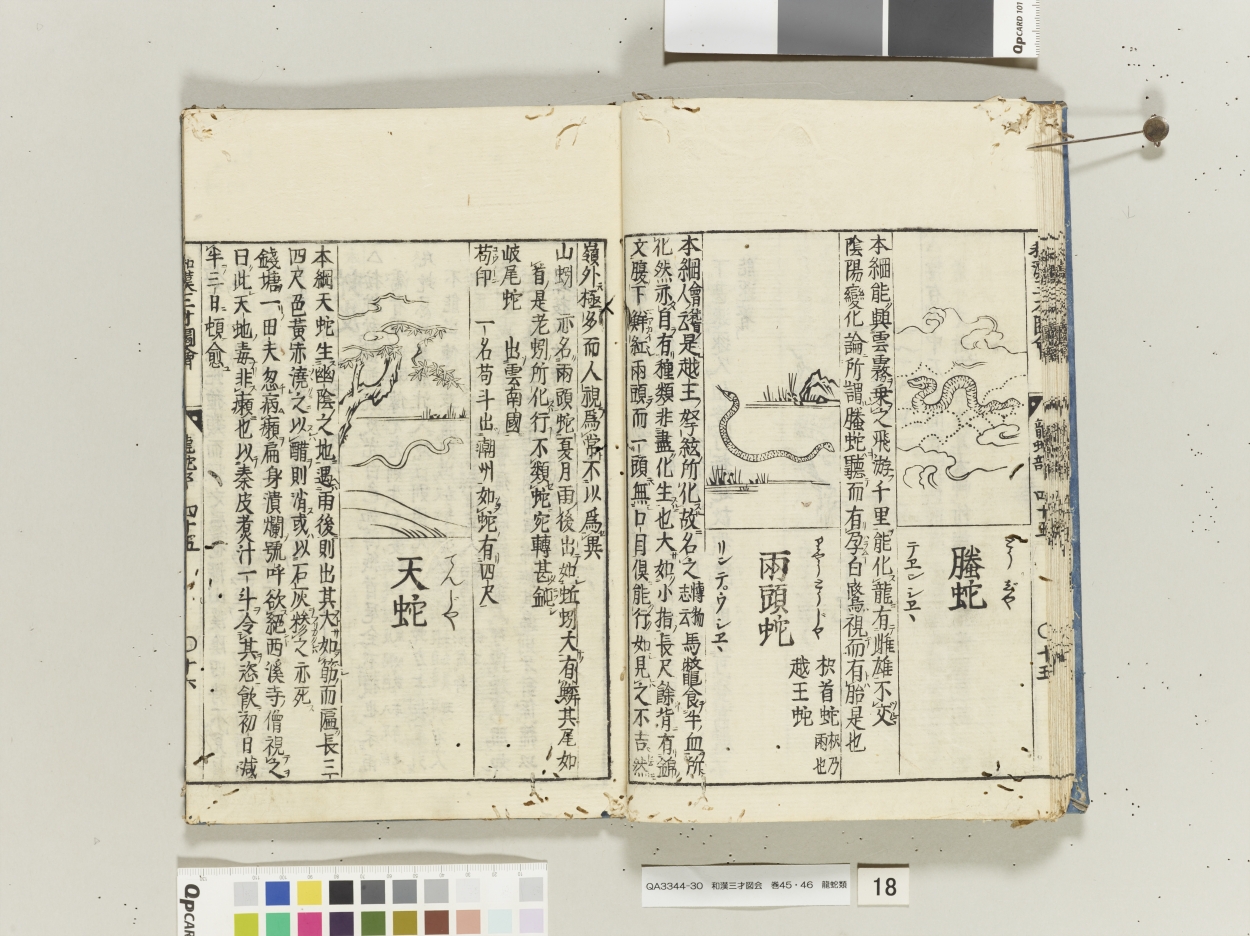 螣蛇
とうじや
テエンシヱヽ
本綱能興雲霧乗之飛游千里能化龍有雌雄不交
陰陽變化論所謂螣蛇聽而有孕白鷺視而有胎是也
兩頭蛇
りやうとうじや
リンテ゚ウシヱヽ
枳首蛇 枳乃兩也
越王蛇
本綱會稽人云是越王弩絃所化故名之博物志云馬鼈食牛血所
化然亦自有種類非盡化生也大如小指長尺餘背有錦
文腹下鮮紅兩頭而一頭無口目俱能行如見之不吉然
嶺外極多而人視爲常不以爲異
山蚓亦名兩頭蛇夏月雨後出如蚯蚓大有鱗其尾如
首是老蚓所化行不類蛇宛轉甚鈍
岐尾蛇 出雲南國
苟印 一名苟斗出潮州如蛇有四尺
天蛇
てんじや
本綱天蛇生幽陰之地遇雨後則出其大如筯而匾長三
四尺色黃赤澆之以醋則消或以石灰糝之亦死
錢塘一田夫忽病癩扁身潰爛號呼欲絕西溪寺僧視之
曰此天蛇毒非癩也以秦皮煮汁一斗令其恣飮初日減
半三日頓愈
和漢三才圖會
龍蛇部 四十五
〇十五
和漢三才圖會
龍蛇部 四十五
〇十六
QA3344-30 和漢三才図会 巻45・46 龍蛇類
18
QpCARD 101
QpCAR